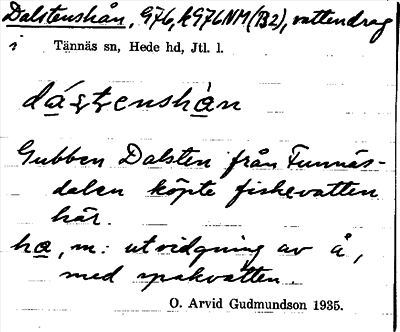 Dalstenshån, G76, AG76NM(B2), vattendrag
i Tännäs sn, Hede hd, Jtl. l.
dástenshån
Gubben Dalsten från Funnäs-
dalen köpte fiskevatten
här.
ha, m: utvidgning av å,
med spakvatten.
O. Arvid Gudmundson 1935.